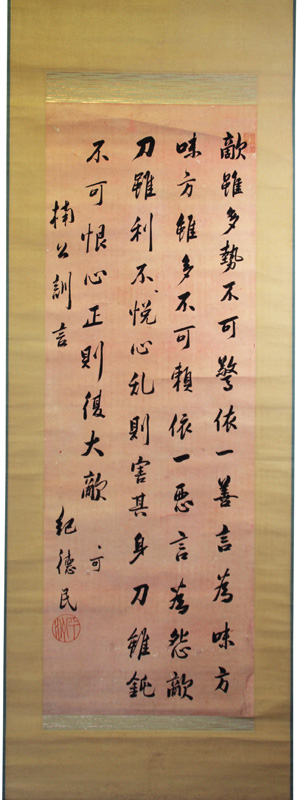 敵雖多勢不可驚依一善言為味方
味方雖多不可頼依一悪言為怨敵
刀雖利不、悦心乱則害其身刀雖鈍
不可恨心正則復大敵 、可
楠公訓言 紀徳民